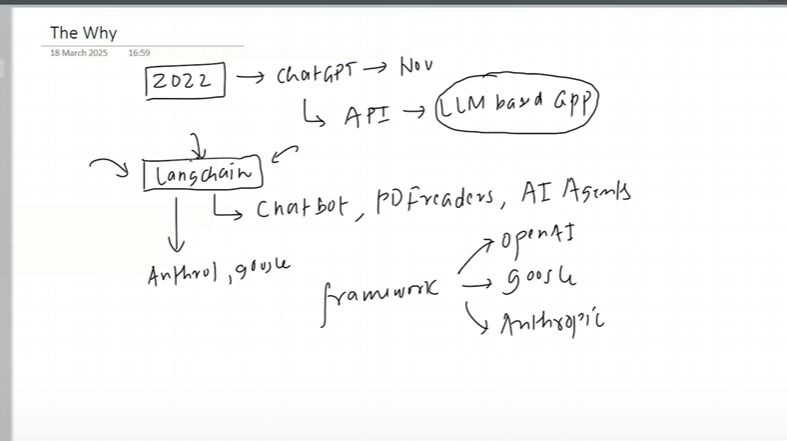 The Why
18 March 2025 16:59
2022 → ChatGPT → Nov
↳ API → LLM based app
Langchain
↳ Chatbot, PDFreaders, AI Agents
Anthro, google
framework
→ openAI
→ google
→ Anthropic